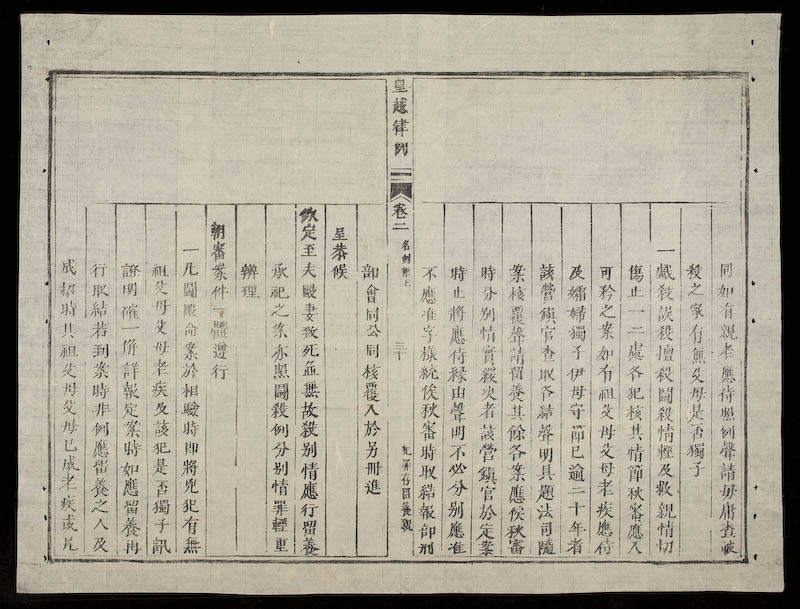 同如有親老應侍照例聲請毋庸查被
殺之家有無父母是否獨子
一戲殺誤殺擅殺鬪殺情輕及救親情切
傷止一二處各犯核其情節秋審應入
可矜之案如有祖父母父母老疾應侍
及孀婦獨子伊母守節已逾二十年者
該營鎮官查取各結聲明具題法司隨
案核覆聲請留養其餘各案應俟秋審
時分別情實緩决者該營鎮官於定案
時止將應侍緣由聲明不必分別應准
不應准字樣統俟秋審時取結報部刑
皇越律例
卷二
名例律上
三十
犯罪存留養親
部會同公同核覆入於另冊進
呈恭候
欽定至夫毆妻致死並無故殺別情應行留養
承祀之案亦照鬪殺例分別情罪輕重
辦理
朝審案件一體遵行
一凡鬪毆命案於相驗時即將兇犯有無
祖父母父母老疾及該犯是否獨子訊
證明確一併詳報定案時如應留養再
行取結若到案時非例應留養之人及
成招時其祖父母父母已成老疾或兄